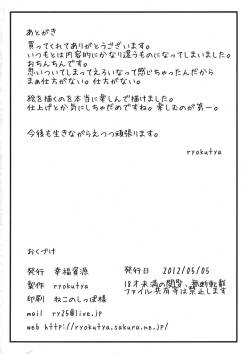 あとがき
買ってくれてありがとうございます。
いつもとは内容的にかなり違うものになってしまいました。
おちんちんです。
思いついてしまってえろいなって感じちゃったんだから
まぁ仕方がない。仕方がない。
絵を描くのを本当に楽しんで描けました。
仕上げとか気にしちゃだめですね。楽しむのが第一。
今後も生きながらえつつ頑張ります。
ryokutya
おくづけ
発行 幸福資源
発行日 2012/05/05
製作 ryokutya
18才未満の閲覧、無断転載
印刷 ねこのしっぽ様
ファイル共有等は禁止します
mail ry25@live.jp
web http://ryokutya.sakura.ne.jp/